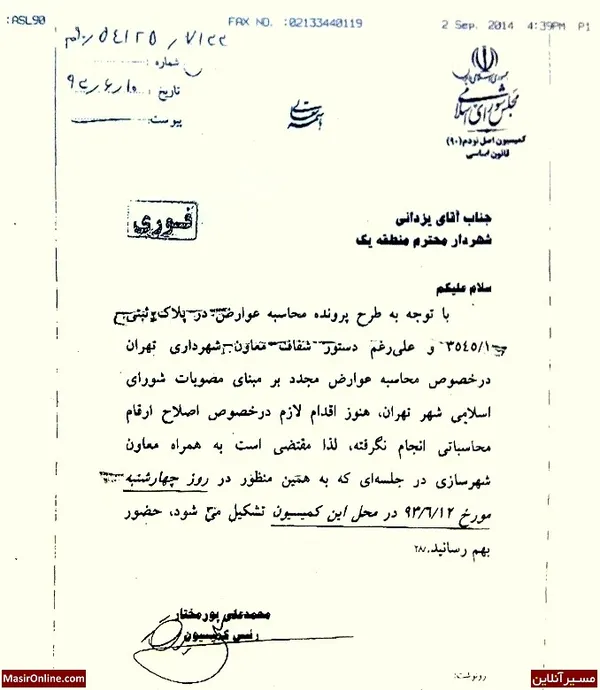 :ASL90 FAX NO. :02133440119 2 Sep. 2014 4:39PM P1
شماره :
تاریخ : ۹۳٫۶٫۱۰
پیوست:
باسمه تعالی
جمهوری اسلامی ایران
مجلس شورای اسلامی
کمیسیون اصل نودم (۹۰)
قانون اساسی
فوری
جناب آقای یزدانی
شهردار محترم منطقه یک
سلام علیکم
با توجه به طرح پرونده محاسبه عوارض در پلاک ثبتی
۳۵۴۵/۱ و علی‌رغم دستور شفاف معاون شهرداری تهران
درخصوص محاسبه عوارض مجدد بر مبنای مصوبات شورای
اسلامی شهر تهران، هنوز اقدام لازم درخصوص اصلاح ارقام
محاسباتی انجام نگرفته، لذا مقتضی است به همراه معاون
شهرسازی در جلسه‌ای که به همین منظور در روز چهارشنبه
مورخ ۹۳/۶/۱۲ در محل این کمیسیون تشکیل می شود، حضور
بهم رسانید.
محمدعلی پورمختار
رئیس کمیسیون
رونوشت:
MasirOnline.com مسیرآنلاین